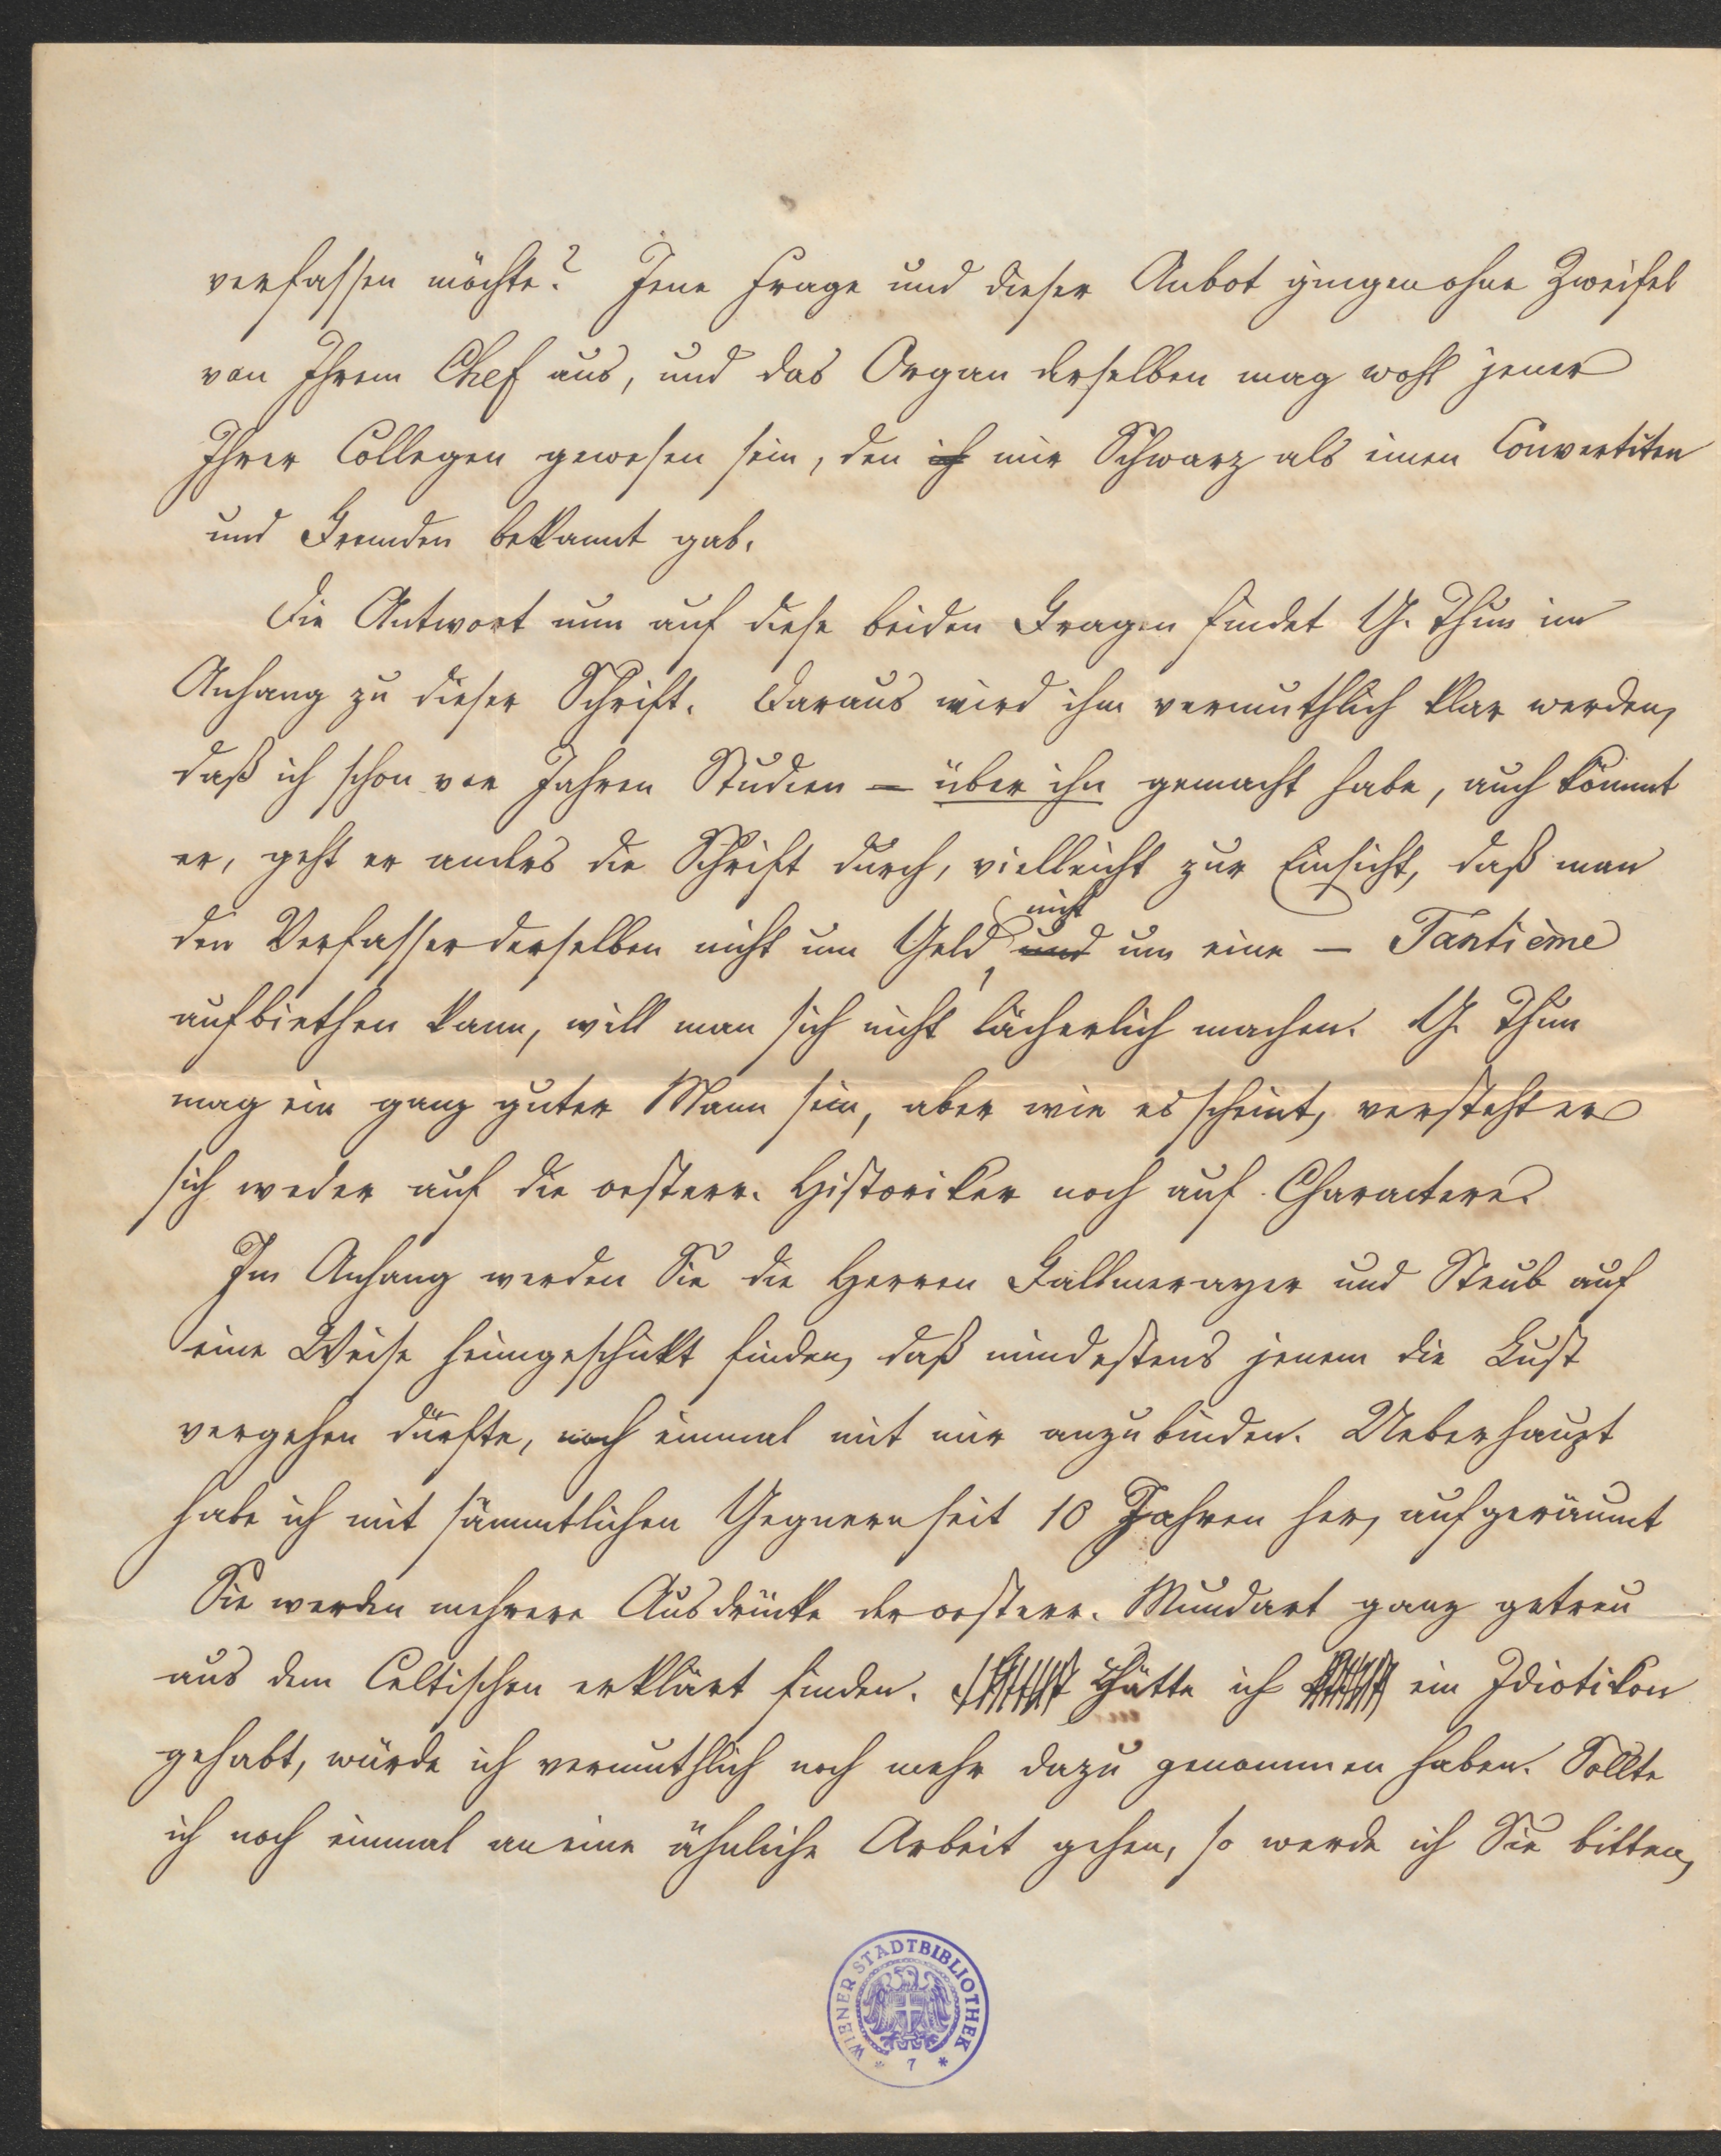 verfassen möchte? Jene Frage und dieser Anbot gingen ohne Zweifel
von Ihrem Chef aus, und das Organ derselben mag wohl jener
Ihrer Collegen gewesen sein, den ich mir Schwarz als einen Convertiten
und Fremden bekannt gab.
Die Antwort nun auf diese beiden Fragen findet G. Thun im
Anhang zu dieser Schrift. Daraus wird ihm vermuthlich klar werden,
daß ich schon vor Jahren Studien – über ihn gemacht habe, auch kömmt
er, geht er anders die Schrift durch, vielleicht zur Einsicht, daß man
nicht
den Verfasser derselben nicht um Geld, und um eine – Tantième
aufbiethen kann, will man sich nicht lächerlich machen. G. Thun
mag ein ganz guter Mann sein, aber wie es scheint, versteht er
sich weder auf die oesterr. Historiker noch auf Charactere.
Im Anhang werden Sie die Herren Fallmerayer und Steub auf
eine Weise heimgeschickt finden, daß mindestens jenem die Lust
vergehen dürfte, noch einmal mit mir anzubinden. Ueberhaupt
habe ich mit sämmtlichen Gegnern seit 10 Jahren her, aufgeräumt
Sie werden mehrere Ausdrücke der oesterr. Mundart ganz getreu
aus dem Celtischen erklärt finden. Hätte ich ein Idiotikon
gehabt, würde ich vermuthlich noch mehr dazu genommen haben. Sollte
ich noch einmal an eine ähnliche Arbeit gehen, so werde ich Sie bitten,
WIENER STADTBIBLIOTHEK
* 7 *